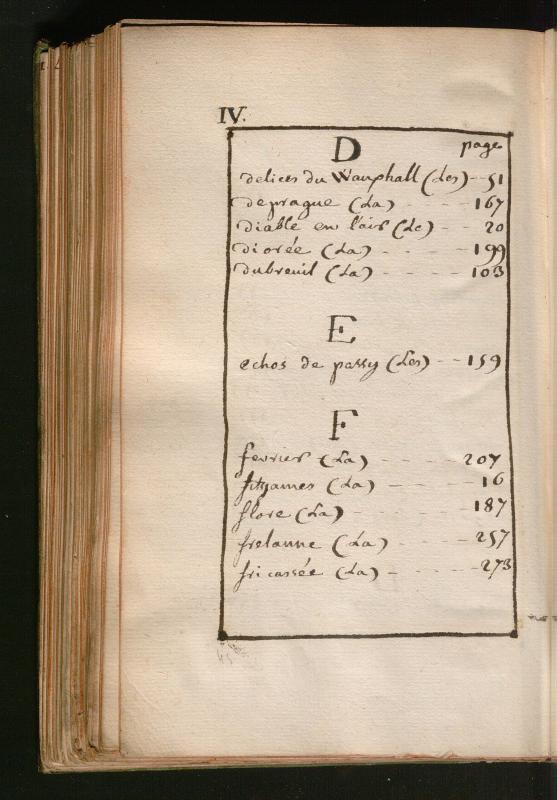 IV.
D page
delices du Wauxhall (Les) -- 51
deprague (La) - - - - 167
diable en l'air (Le) - - 20
diorée (La) - - - - 199
dubreuil (La) - - - - - 103
E
echos de passy (Les) -- 159
F
fevrier (La) - - - - 207
fitzjames (La) - - - - 16
flore (La) - - - - - 187
frelanne (La) - - - - 257
fricassée (La) - - - - - 273